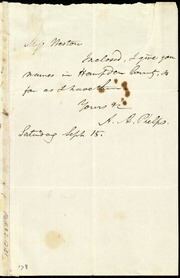 Miss Weston
Enclosed, I give you
names in Hampden County, so
far as I have them
Yours &c
A. A. Phelps
Saturday Sept. 15.